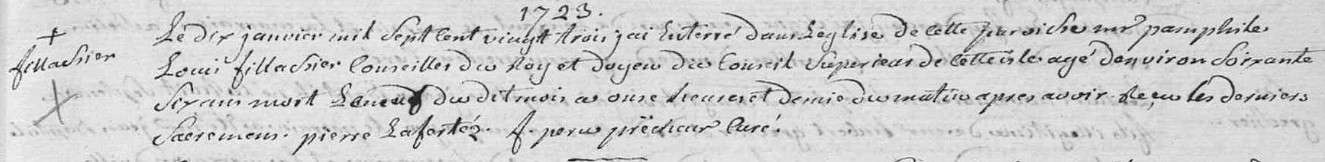 1723.
+ Le dix janvier mil sept cent vingt trois j'ai Enterré dans L'eglise de cette paroiche mr pamphile
fillashier Louis fillashier Conseiller du Roy et doyen du Conseil Superieur de cette isle agé d'environ Soixante
Six ans mort Le neuf du dit mois a onse heures et demie du matin apres avoir Reçu les derniers
Sacremens. pierre Lafertéz. f. peru prêcheur Curé.